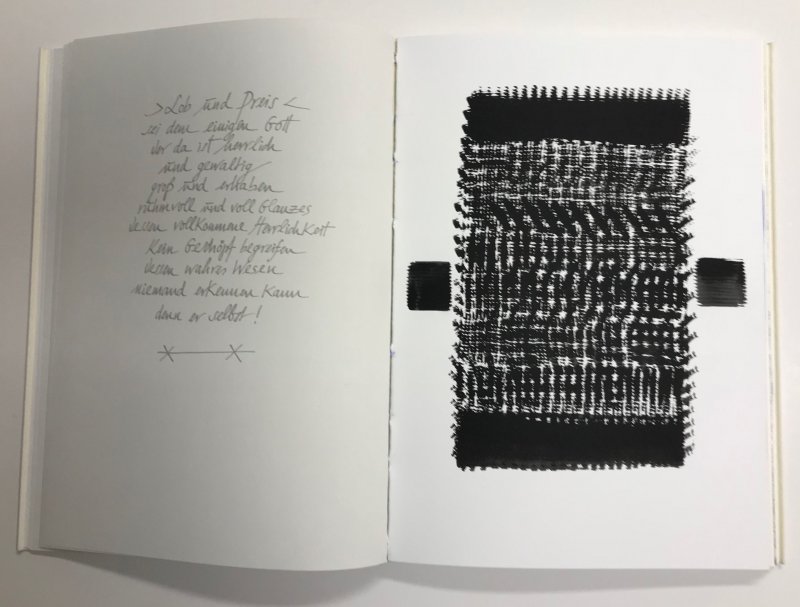 >Lob und Preis<
sei dem einigen Gott
der da ist herrlich
und gewaltig
groß und erhaben
ruhmvoll und voll Glanzes
dessen vollkommene Herrlichkeit
kein Geschöpf begreifen
dessen wahres Wesen
niemand erkennen kann
denn er selbst!